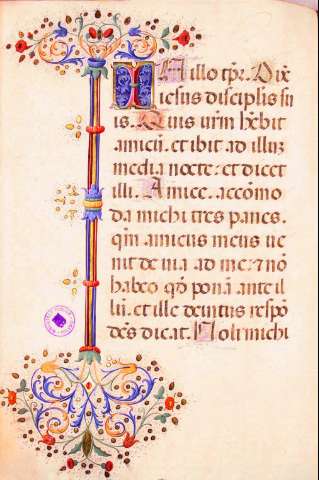 IN illo tpr. Dix
iesus disciplis su
is. Quis urm hẽbit
amicũ. et ibit ad illuz
media nocte: et dicet
illi. Amice. accõmo
da michi tres panes.
qm amicus meus ue
nit de uia ad me: ⁊ nõ
habeo qð ponã ante il
lũ. et ille deintus respõ
dẽs dicat. Noli michi